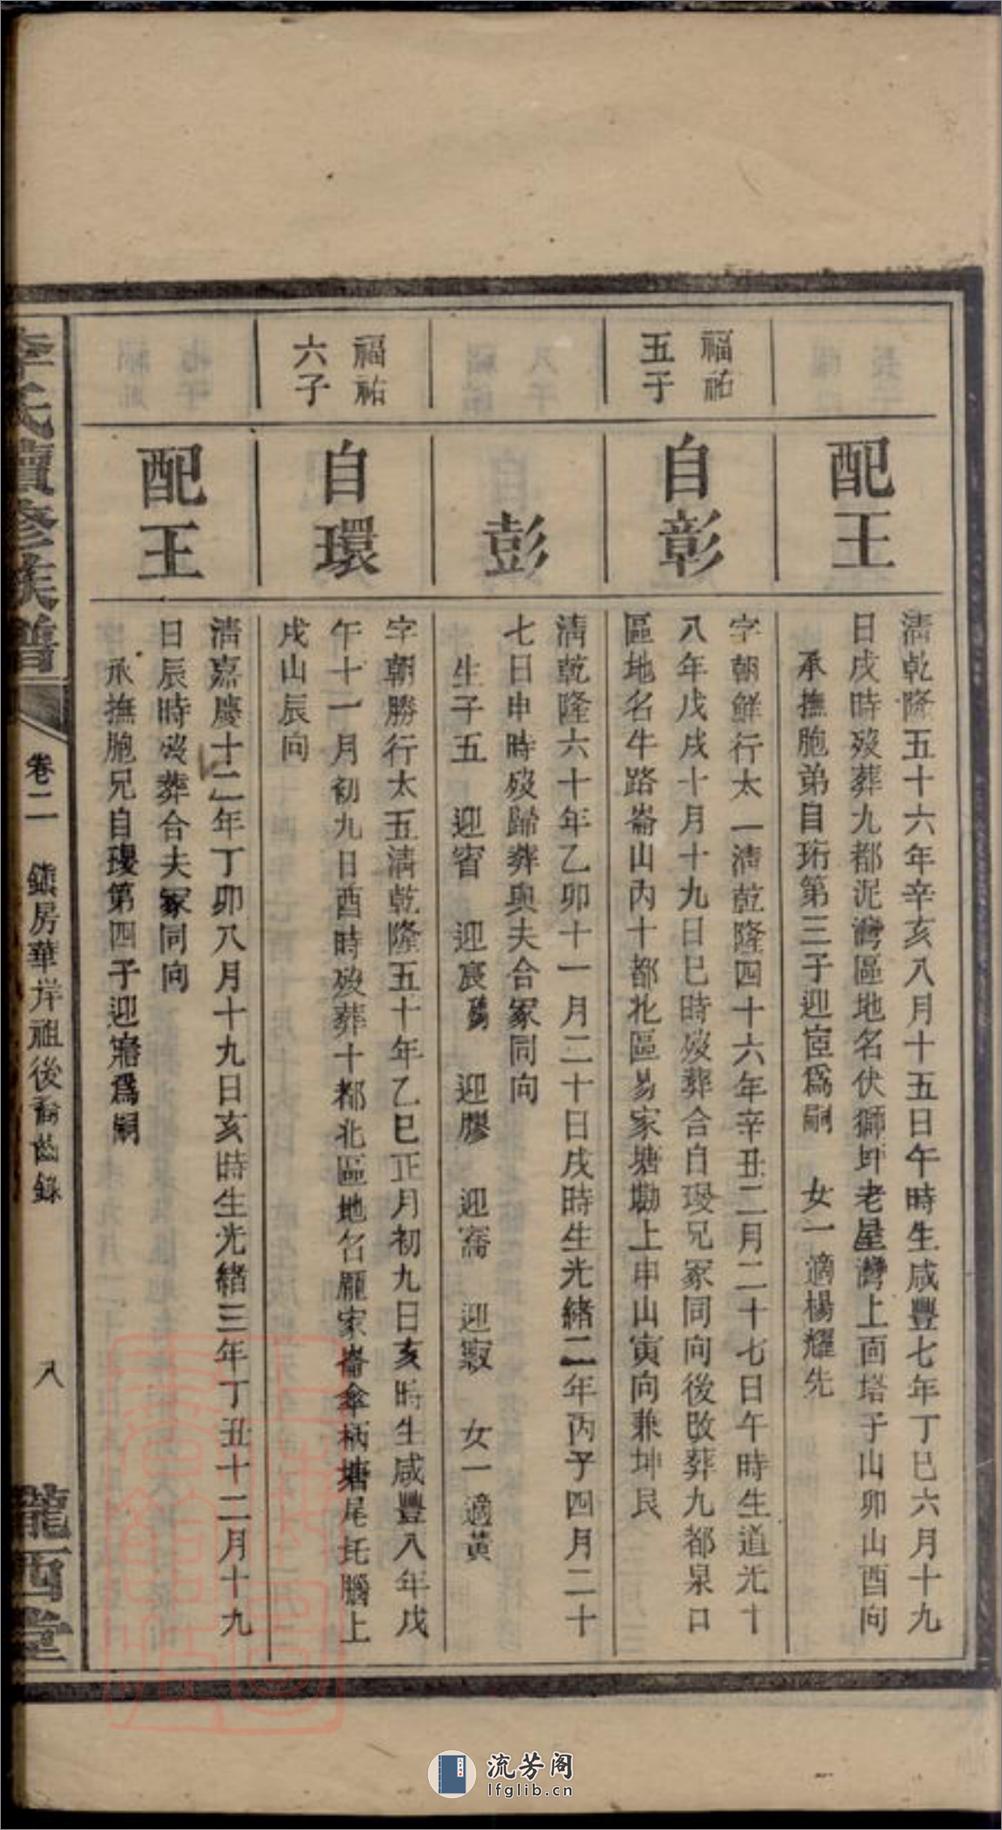 配王
清乾隆五十六年辛亥八月十五日午時生咸豐七年丁巳六月十九
日戌時歿葬九都泥灣區地名伏獅坪老屋灣上面塔子山卯山酉向
承撫胞弟自珩第三子迎宧爲嗣 女一適楊耀先
福祐
五子
自彰
字朝鮮行太一清乾隆四十六年辛丑二月二十七日午時生道光十
八年戊戌十月十九日巳時歿葬合自璎兄冢同向後改葬九都泉口
區地名牛路崙山內十都北區易家塘坳上申山寅向兼坤艮
彭
清乾隆六十年乙卯十一月二十日戌時生光緒二年丙子四月二十
七日申時歿歸葬與夫合冢同向
生子五 迎宥 迎宸 迎膠 迎寯 迎寂 女一適黃
福祐
六子
自環
字朝勝行太五清乾隆五十年乙巳正月初九日亥時生咸豐八年戊
午十一月初九日酉時歿葬十都北區地名龐家崙傘柄塘尾坵腦上
戌山辰向
配王
清嘉慶十二年丁卯八月十九日亥時生光緒三年丁丑十二月十九
日辰時歿葬合夫冢同向
承撫胞兄自璎第四子迎㝛爲嗣
李氏續修族譜
卷二 鎮房華岸祖後裔齒錄
八
隴西堂
流芳阁
lfglib.cn